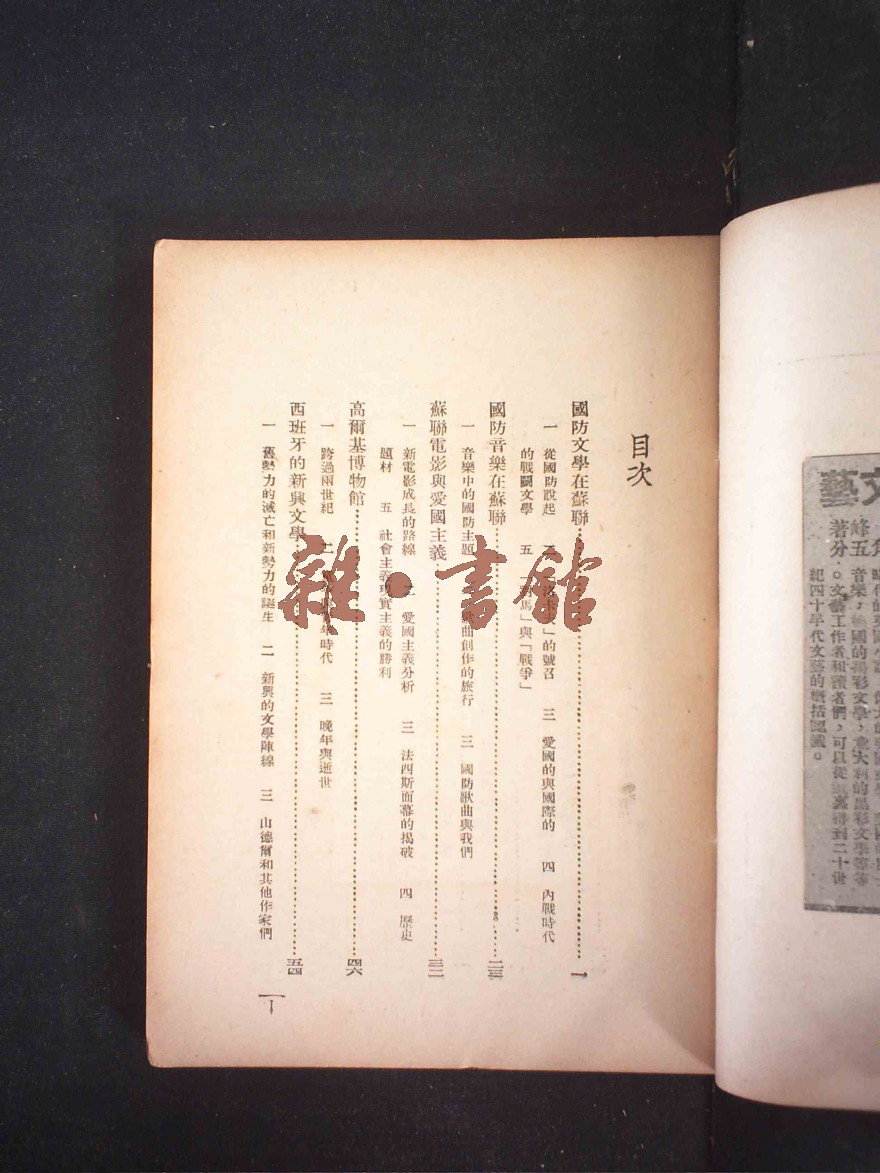 目次
國防文學在蘇聯……一
一 從國防說起 二 」的號召 三 愛國的與國際的 四 內戰時代
的戰鬭文學 五 馬」與「戰爭」
國防音樂在蘇聯……二三
一 音樂中的國防主題 歌曲創作的旅行 三 國防歌曲與我們
蘇聯電影與愛國主義……三二
一 新電影成長的路線 二 愛國主義分析 三 法西斯面幕的揭破 四 歷史
題材 五 社會主義現實主義的勝利
高爾基博物館……四六
一 跨過兩世紀 二 年時代 三 晚年與逝世
西班牙的新興文學……五四
一 舊勢力的滅亡和新勢力的誕生 二 新興的文學陣線 三 山德爾和其他作家們
1
雜·書館
文藝
峰著
五分
音樂,德國的褐彩文學,意大利的黑彩文學等等
。文藝工作者和讀者們,可以從這裏得到二十世
紀四十年代文藝的概括認識。